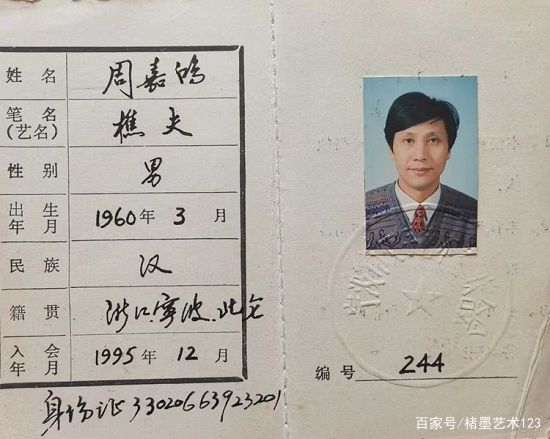 姓名 周嘉鸿
笔名(艺名) 樵夫
性别 男
出生年月 1960年 3月
民族 汉
籍贯 浙江.宁波.北仑
入会年月 1995年 12月
身份证33020663923201
编号 244
百家号/楮墨艺术123